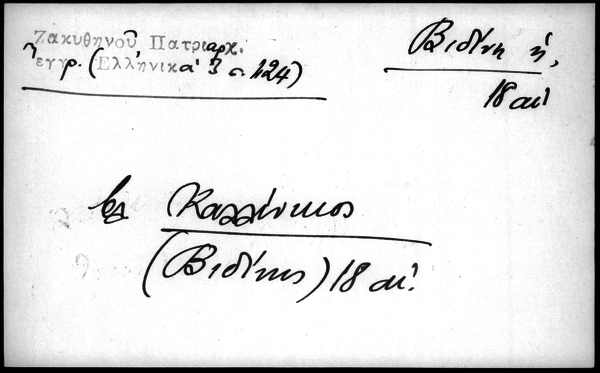 Ζακυθηνοῦ Πατριαρχ.
ἔγγρ. (Ἑλληνικὰ 3 σ. 124)
Βιδίνη ἡ,
18 αἰ.
βλ Καλλίνικος
(Βιδίνης) 18 αἰ.